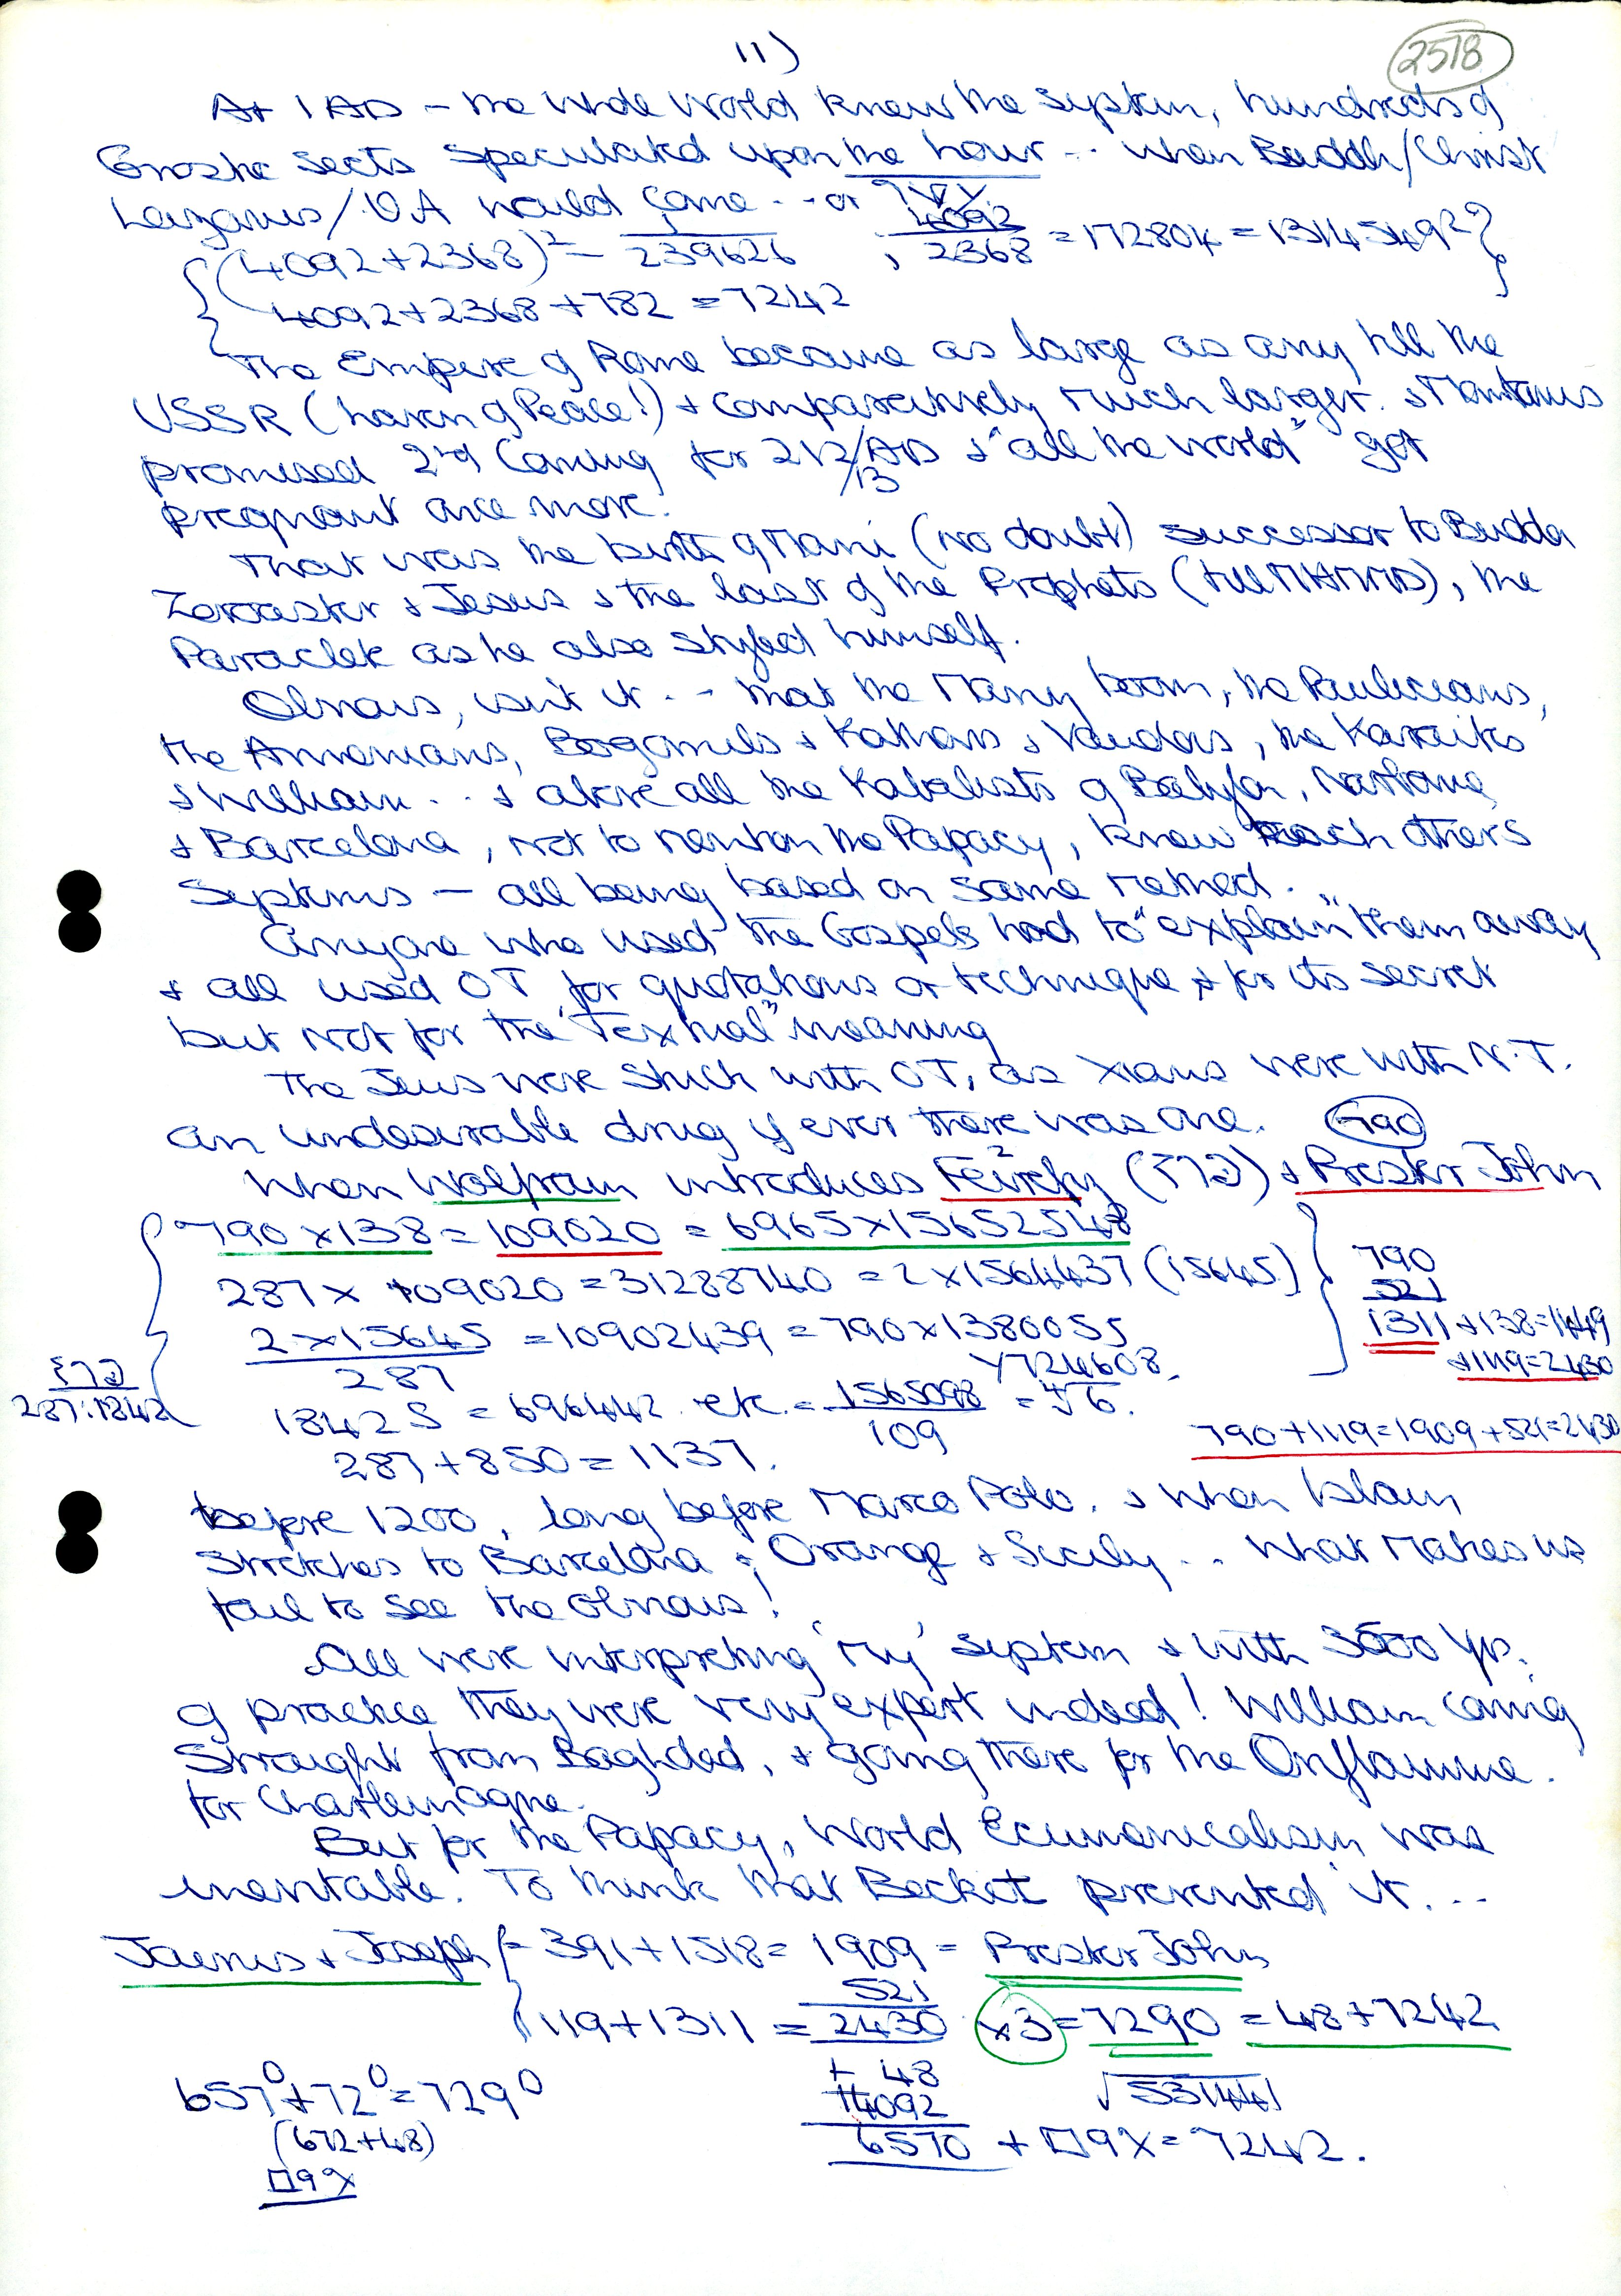 11)
2518
At 1 AD – the whole World knew the System, hundreds of
Gnostic sects speculated upon the hour .. when Buddh/Christ
Lazarus/ would come .. or
{(4092+2368)² = 239626 , 4092/2368 = 172804 = 1314549²?}
4092+2368+782 = 7242
The Empire of Rome became as large as any till the
USSR (haven of Peace!) + comparatively much larger. + Montanus
promised 2nd Coming for 212/13 AD + "all the world" got
pregnant once more.
That was the birth of Mani (no doubt) successor to Budda
Zoroaster + Jesus + the last of the Prophets (till MHMMD), the
Paraclete as he also styled himself.
Obvious, isn't it .. that the Many boom, the Paulicians,
the Armenians, Bogomils + Kathars + Vaudois, the Karaites
+ William .. + above all the Kabalists of Babylon, Narbonne
+ Barcelona, not to mention the Papacy, knew each others
Systems – all being based on same method.
Anyone who used the Gospels had to "explain" them away
+ all used OT for quotations or technique + for its secret
but not for the "Textual" meaning
The Jews were stuck with OT, as Xians were with N.T.
an undesirable drug if ever there was one.
When Wolfram introduces Feirefiz + Prester John
790 x 138 = 109020 = 6965 x 15652548
287 x 109020 = 31288740 = 2 x 1564437 (15645)
790
521
1311 + 138 = 1449
+ 1119 = 2430
2 x 15645 / 287 = 10902439 = 790 x 1380055
287:1842
1842 5 = 696442 etc. = 1565098 / 109 = √6.
790+1119=1909+521=2430
287+850 = 1137.
before 1200, long before Marco Polo. + when Islam
stretches to Barcelona + Orange + Sicily .. what makes us
fail to see the obvious!
All were interpreting 'my' system + with 3500 yrs.
of practice they were very expert indeed! William coming
straight from Baghdad, + going there for the Oriflamme.
for Charlemagne.
But for the Papacy, World Ecumenicalism was
inevitable. To think that Becket prevented it. ...
Joseph { = 391+1518 = 1909 = Prester John
521
1119+1311 = 2430 x3 = 7290 = 48+7242
657° + 72° = 729°
(672+48)
+ 48
4092
√531441
6570 + = 7242.